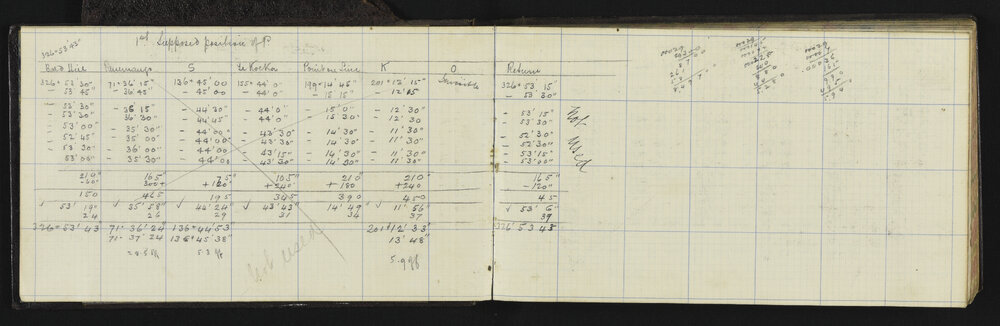 326° 53' 43"
1st Supposed position of P.
Bald Hill S Te Koko Point on Line K O Return
326° 53' 30" 71° 36' 15" 136° 45' 00 155° 44' 0" 199° 14' 45" 201° 12' 15" Invisible 326° 53' 15"
- 53' 45" - 36' 45" - 45' 00 - 44' 0" - 15' 15" - 12' 15 - 53' 30"
- 53' 30" - 36' 15" - 44' 30" - 44' 0' 15' 0" - 12' 30" - 53' 15"
- 53' 30" 36' 30" - 44' 45" - 44' 0" 15' 30" - 12' 30 - 53' 30"
- 53' 00" - 35' 30" - 44' 00" - 43' 30" - 14' 30" - 11' 30" - 52' 30"
- 52' 45" - 35' 00" - 44' 00" - 43' 30" - 14' 30" - 11' 30" - 52' 30"
- 53' 30 - 36' 00" - 44' 00" - 43' 15" - 14' 30" - 11' 30" - 53' 15"
53' 00" - 35' 30" - 44' 00 - 43' 30" - 14' 00" - 11' 30" - 53' 00"
Not Used
210" 165" 75" 105" 210 210" 165"
-60" 300+ +120" +240" +180 +240 -120"
150 465 195 345 390 450 45
√ 53' 19" √ 35' 58" √ 44' 24" √ 43' 43" 14' 49" √ 11' 56" √ 53' 6"
24 26 29 31 34 37 39
326° 53' 43 71° 36' 24 136° 44' 53" 201° 12' 33" 326° 53 45
71° 37' 24 136° 45' 38" 13' 48"
5.9 off
Not Used